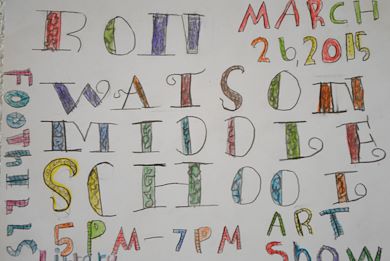 RON
MARCH
26,2015
WATSON
MIDDLE
SCHOOL
FOOTHiLLS
5PM-7PM
ART
SHOW